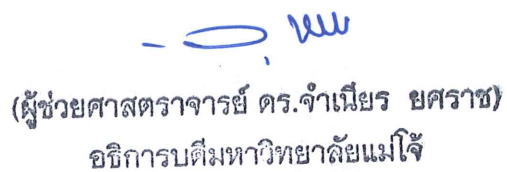 (ผู้ช่วยศาสตราจารย์ ดร.จำเนียร  ยศราช)
อธิการบดีมหาวิทยาลัยแม่โจ้